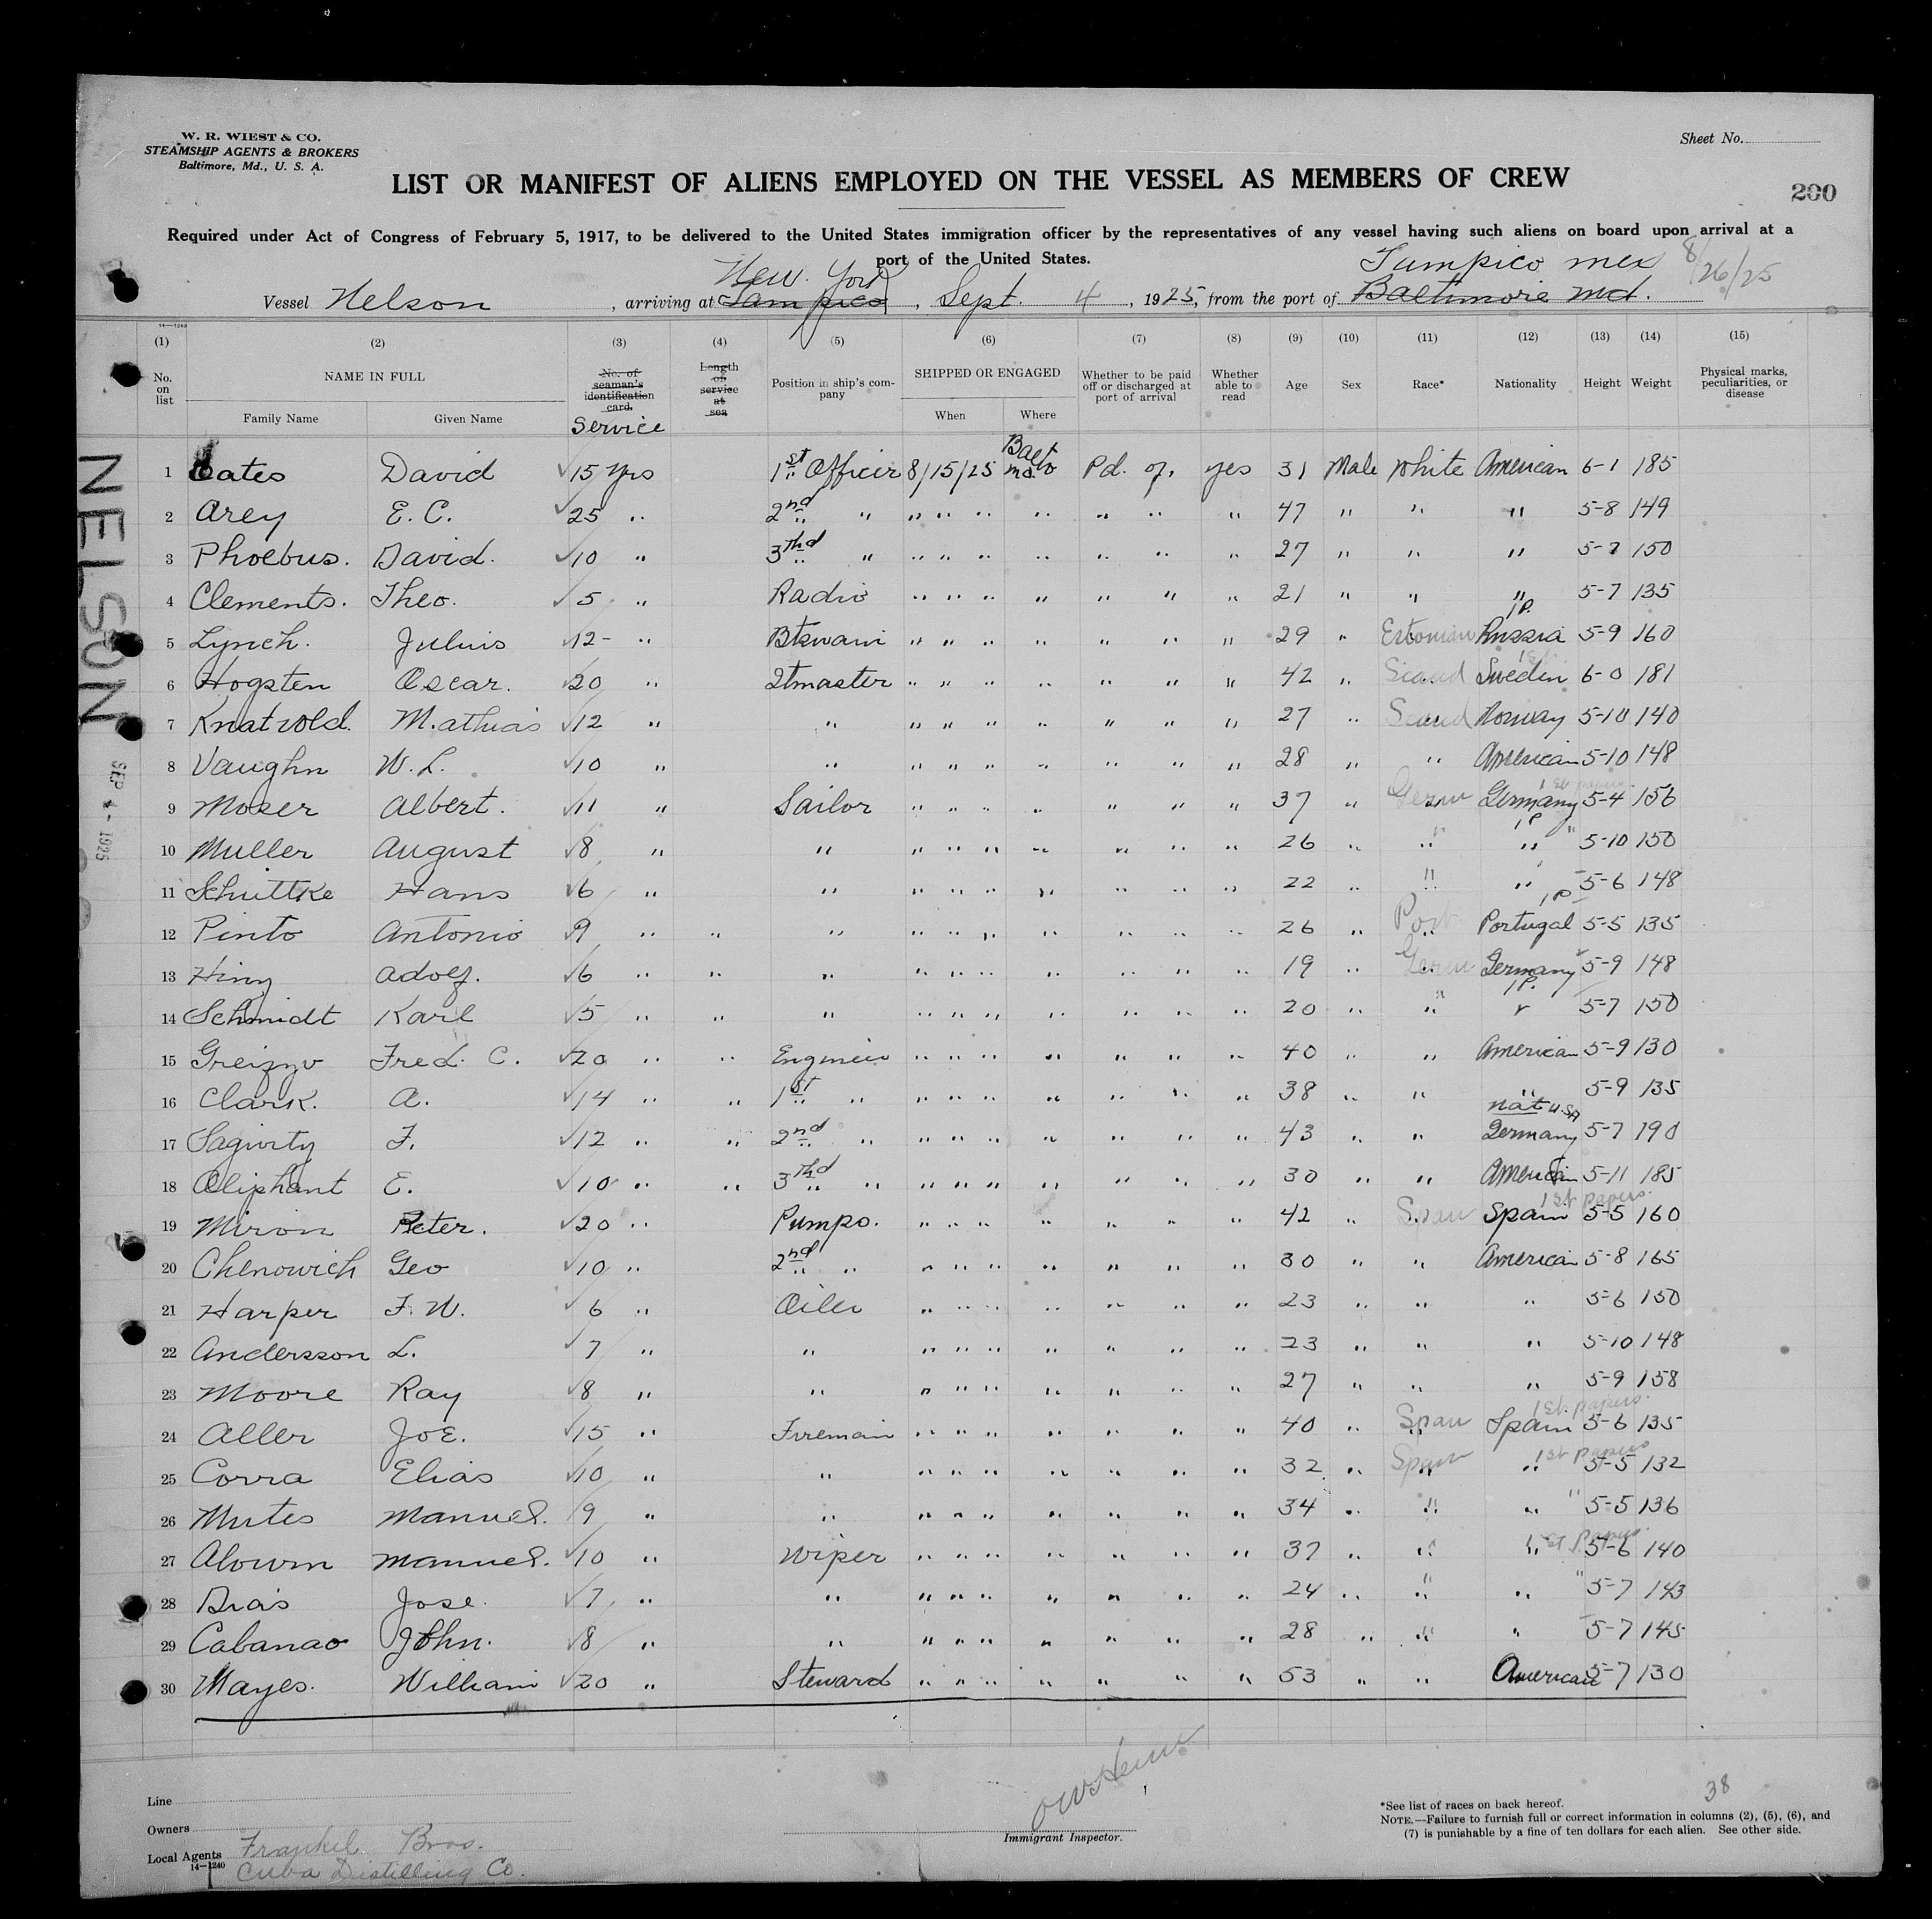 W. R. WIEST & CO.
STEAMSHIP AGENTS & BROKERS
Baltimore, Md., U. S. A.
Sheet No.
LIST OR MANIFEST OF ALIENS EMPLOYED ON THE VESSEL AS MEMBERS OF CREW
200
Required under Act of Congress of February 5, 1917, to be delivered to the United States immigration officer by the representatives of any vessel having such aliens on board upon arrival at a
port of the United States.
New York Tampico mex 8/26/25
Vessel Nelson, arriving at Tampico, Sept. 4, 1925, from the port of Baltimore Md.
14—1240
(1) (2) (3) (4) (5) (6) (7) (8) (9) (10) (11) (12) (13) (14) (15)
No. on list NAME IN FULL Family Name Given Name No. of seaman's identification card. Service Length of service at sea Position in ship's company SHIPPED OR ENGAGED When Where Whether to be paid off or discharged at port of arrival Whether able to read Age Sex Race* Nationality Height Weight Physical marks, peculiarities, or disease
1 Oates David 15 yrs 1st Officer 8/15/25 Balto Md. Pd. of, yes 31 Male White American 6-1 185
2 Arey E. C. 25 " 2nd " " " " " " " " 47 " " " 5-8 149
3 Phoebus. David. 10 " 3thd " " " " " " " " 27 " " " 5-7 150
4 Clements. Theo. 5 " Radio " " " " " " " 21 " " " 5-7 135
5 Lynch. Julius 12 " Btswain " " " " " " " 29 " Estonian Russia 1P. 5-9 160
6 Hogsten Oscar. 20 " Qtmaster " " " " " " " 42 " Scand Sweden 6-0 181
7 Knatvold. Mathias 12 " " " " " " " " " 27 " Scand Norway 5-10 140
8 Vaughn W. L. 10 " " " " " " " " " 28 " " American 5-10 148
9 Moser Albert. 11 " Sailor " " " " " " " 37 " Germ Germany 1st papers 5-4 156
10 Muller August 8 " " " " " " " " " 26 " " " 1P 5-10 150
11 Schuttke Hans 6 " " " " " " " " " 22 " " " 5-6 148
12 Pinto Antonio 9 " " " " " " " " " " 26 " Port Portugal 1P 5-5 135
13 Hiny Adolf. 6 " " " " " " " " " " 19 " Germ Germany 5-9 148
14 Schmidt Karl 5 " " " " " " " " " " 20 " " " 1P. 5-7 150
15 Fred. C. 20 " " Engineer " " " " " " " 40 " " American 5-9 130
16 Clark. A. 14 " " 1st " " " " " " " " 38 " " " 5-9 135
17 F. 12 " " 2nd " " " " " " " " 43 " " Germany nat U.S.A 5-7 190
18 Oliphant E. 10 " " 3thd " " " " " " " " 30 " " American 5-11 185
19 Miron Peter. 20 " Pumpo. " " " " " " " 42 " Span Spain 1st papers. 5-5 160
20 Chenowich Geo 10 " 2nd " " " " " " " " 30 " " American 5-8 165
21 Harper F. W. 6 " Oiler " " " " " " " 23 " " " 5-6 150
22 Andersson L. 7 " " " " " " " " " 23 " " " 5-10 148
23 Moore Ray 8 " " " " " " " " " 27 " " " 5-9 158
24 Aller Joe. 15 " Fireman " " " " " " " 40 " Span Spain 1st. papers. 5-6 135
25 Corra Elias 10 " " " " " " " " " 32 " Span " 1st papers 5-5 132
26 Manuel. 9 " " " " " " " " " 34 " " " " 5-5 136
27 Manuel. 10 " Wiper " " " " " " " 37 " " " 1st papers. 5-6 140
28 Dias Jose. 7 " " " " " " " " " 24 " " " " 5-7 143
29 Cabanao John. 8 " " " " " " " " " 28 " " " 5-7 145
30 Mayes. William 20 " Steward " " " " " " " 53 " " American 5-7 130
NELSON
SEP 4 - 1925
38
Line
Owners
Local Agents Frankel Bros.
14—1240 Cuba Distilling Co.
Immigrant Inspector.
*See list of races on back hereof.
NOTE.—Failure to furnish full or correct information in columns (2), (5), (6), and
(7) is punishable by a fine of ten dollars for each alien. See other side.